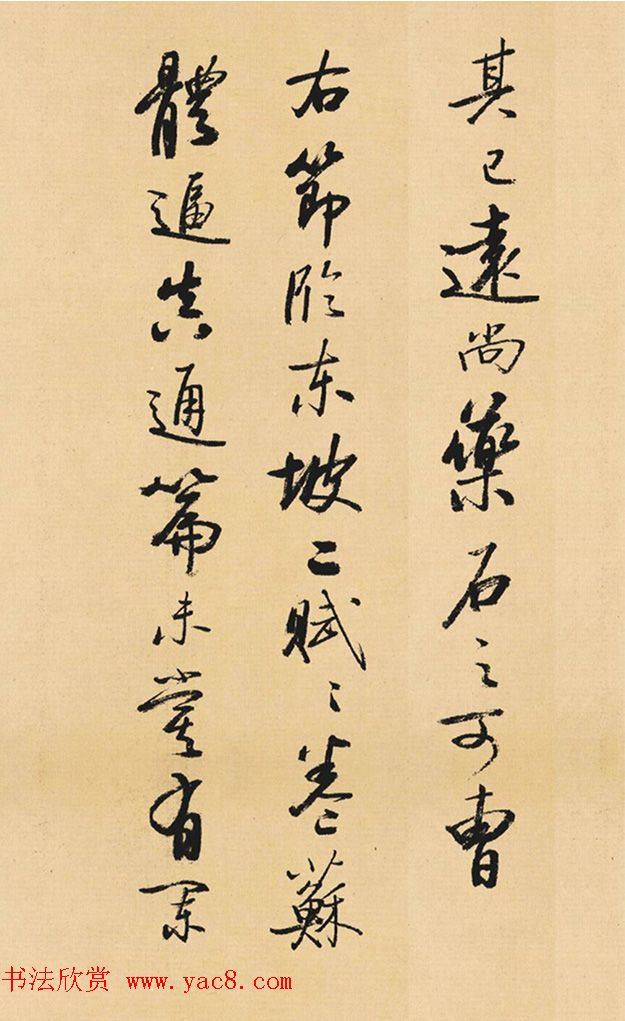 其已遠尚藥石之可曹
右節臨東坡二賦之卷蘇
體逼真通篇未嘗有
书法欣赏 www.yac8.com